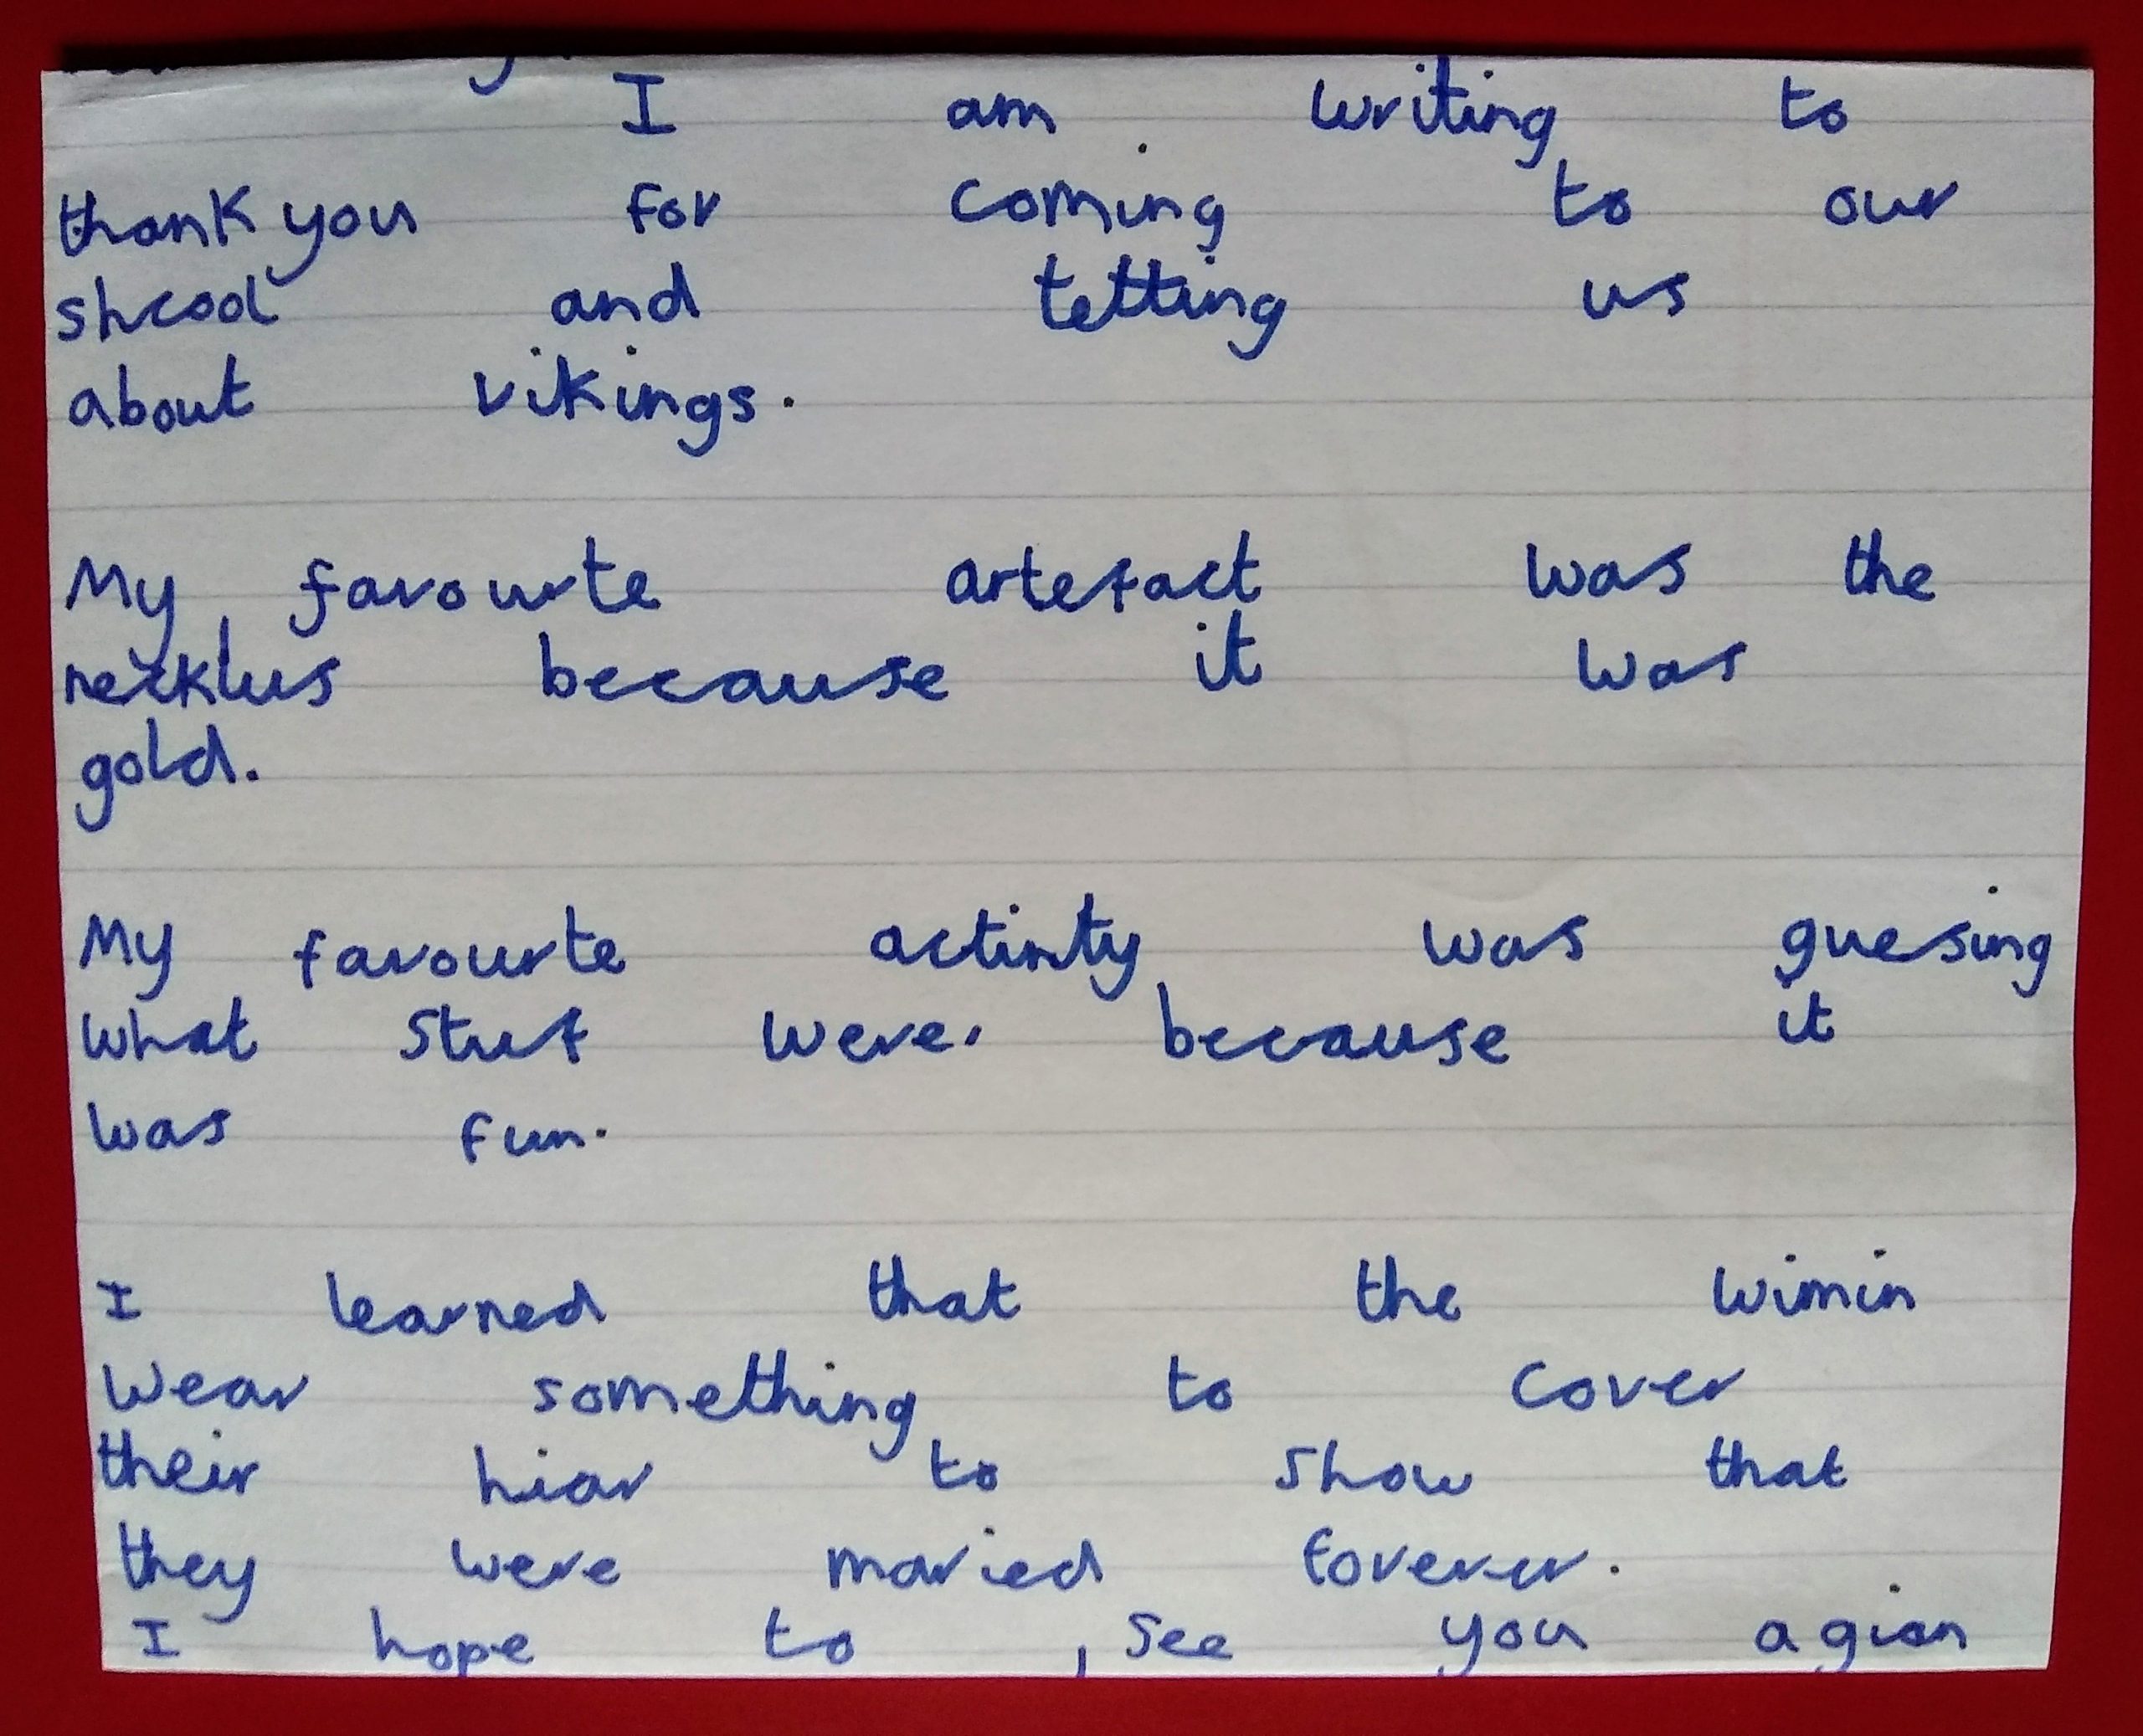 I am writing to
thank you for coming to our
shcool and tetting us
about vikings.
My favourte artefact was the
necklus because it was
gold.
My favourte activity was guesing
what stuf were. because it
was fun.
I learned that the wimin
wear something to cover
their hiar to show that
they were maried forever.
I hope to , see you agian